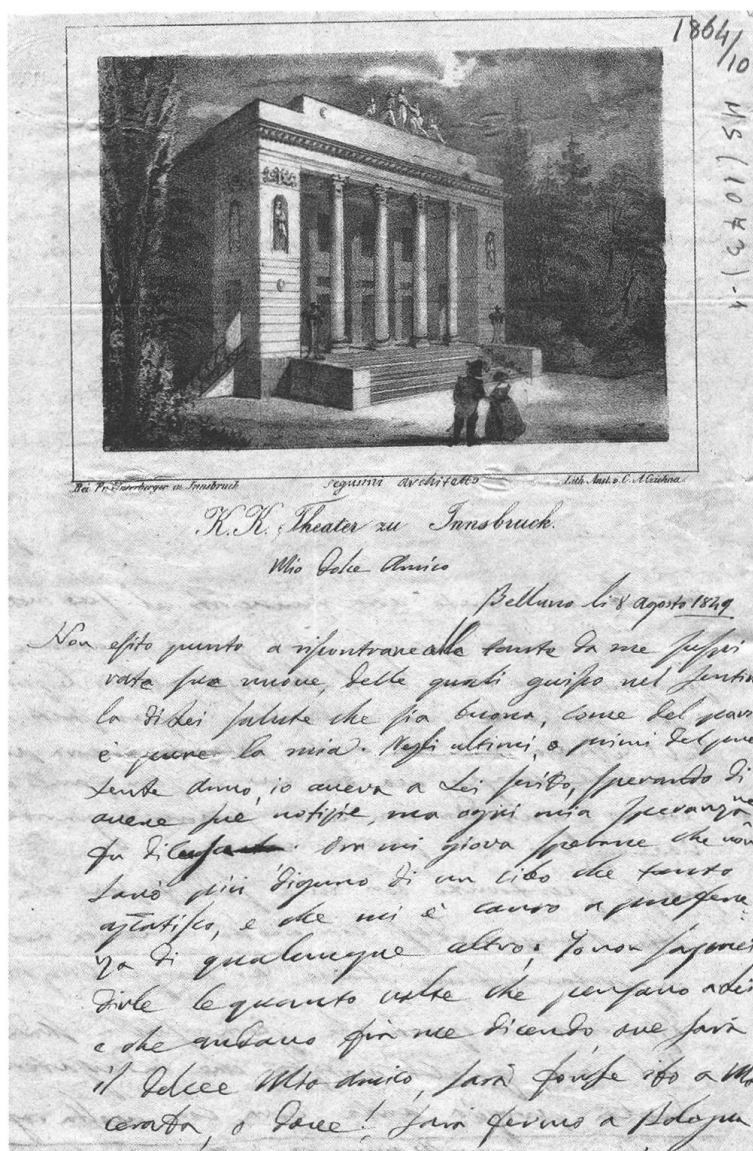 1864/10
MS (1073)-1
Bei Fr. Unterberger in Innsbruck
Segusini Architetto
Lith. Anst. v. C. A. Czichna
K. K. Theater zu Innsbruck.
Mio dolce Amico
Belluno li 8 Agosto 1849
Non esito punto a riscontrare alle tante da me sospi
rate sue nuove, delle quali guisto nel sentire
la di Lei salute che sia buona, come del pari
è pure la mia. Negli ultimi, o primi del pre
sente anno, io aveva a Lei scrito, sperando di
avere sue notizie, ma ogni mia speranza
fu di. Ora mi giova sperare che non
sarò più digiuno di un cibo che tanto
, e che mi è caro a preferen
za di qualunque altro; Io non saprei
dirle le quante volte che pensavo a Lei
e che andavo fra me dicendo, ove sarà
il dolce Mio Amico, sarà forse ito a Ma
cerata, o dove! sarà fermo a Bologna